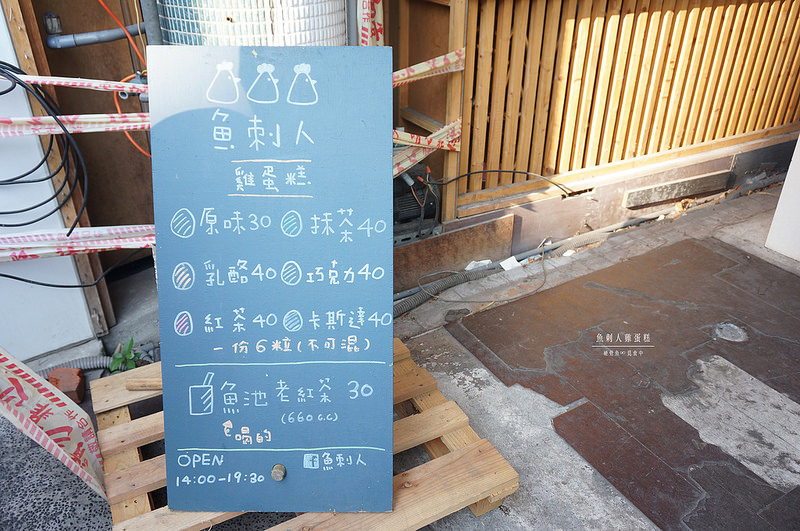 魚刺人
雞蛋糕
原味30 抹茶40
乳酪40 巧克力40
紅茶40 卡斯達40
一份6粒(不可混)
魚池老紅茶 30
(660c.c)
喝的
OPEN
14:00-19:30
f魚刺人
魚刺人雞蛋糕